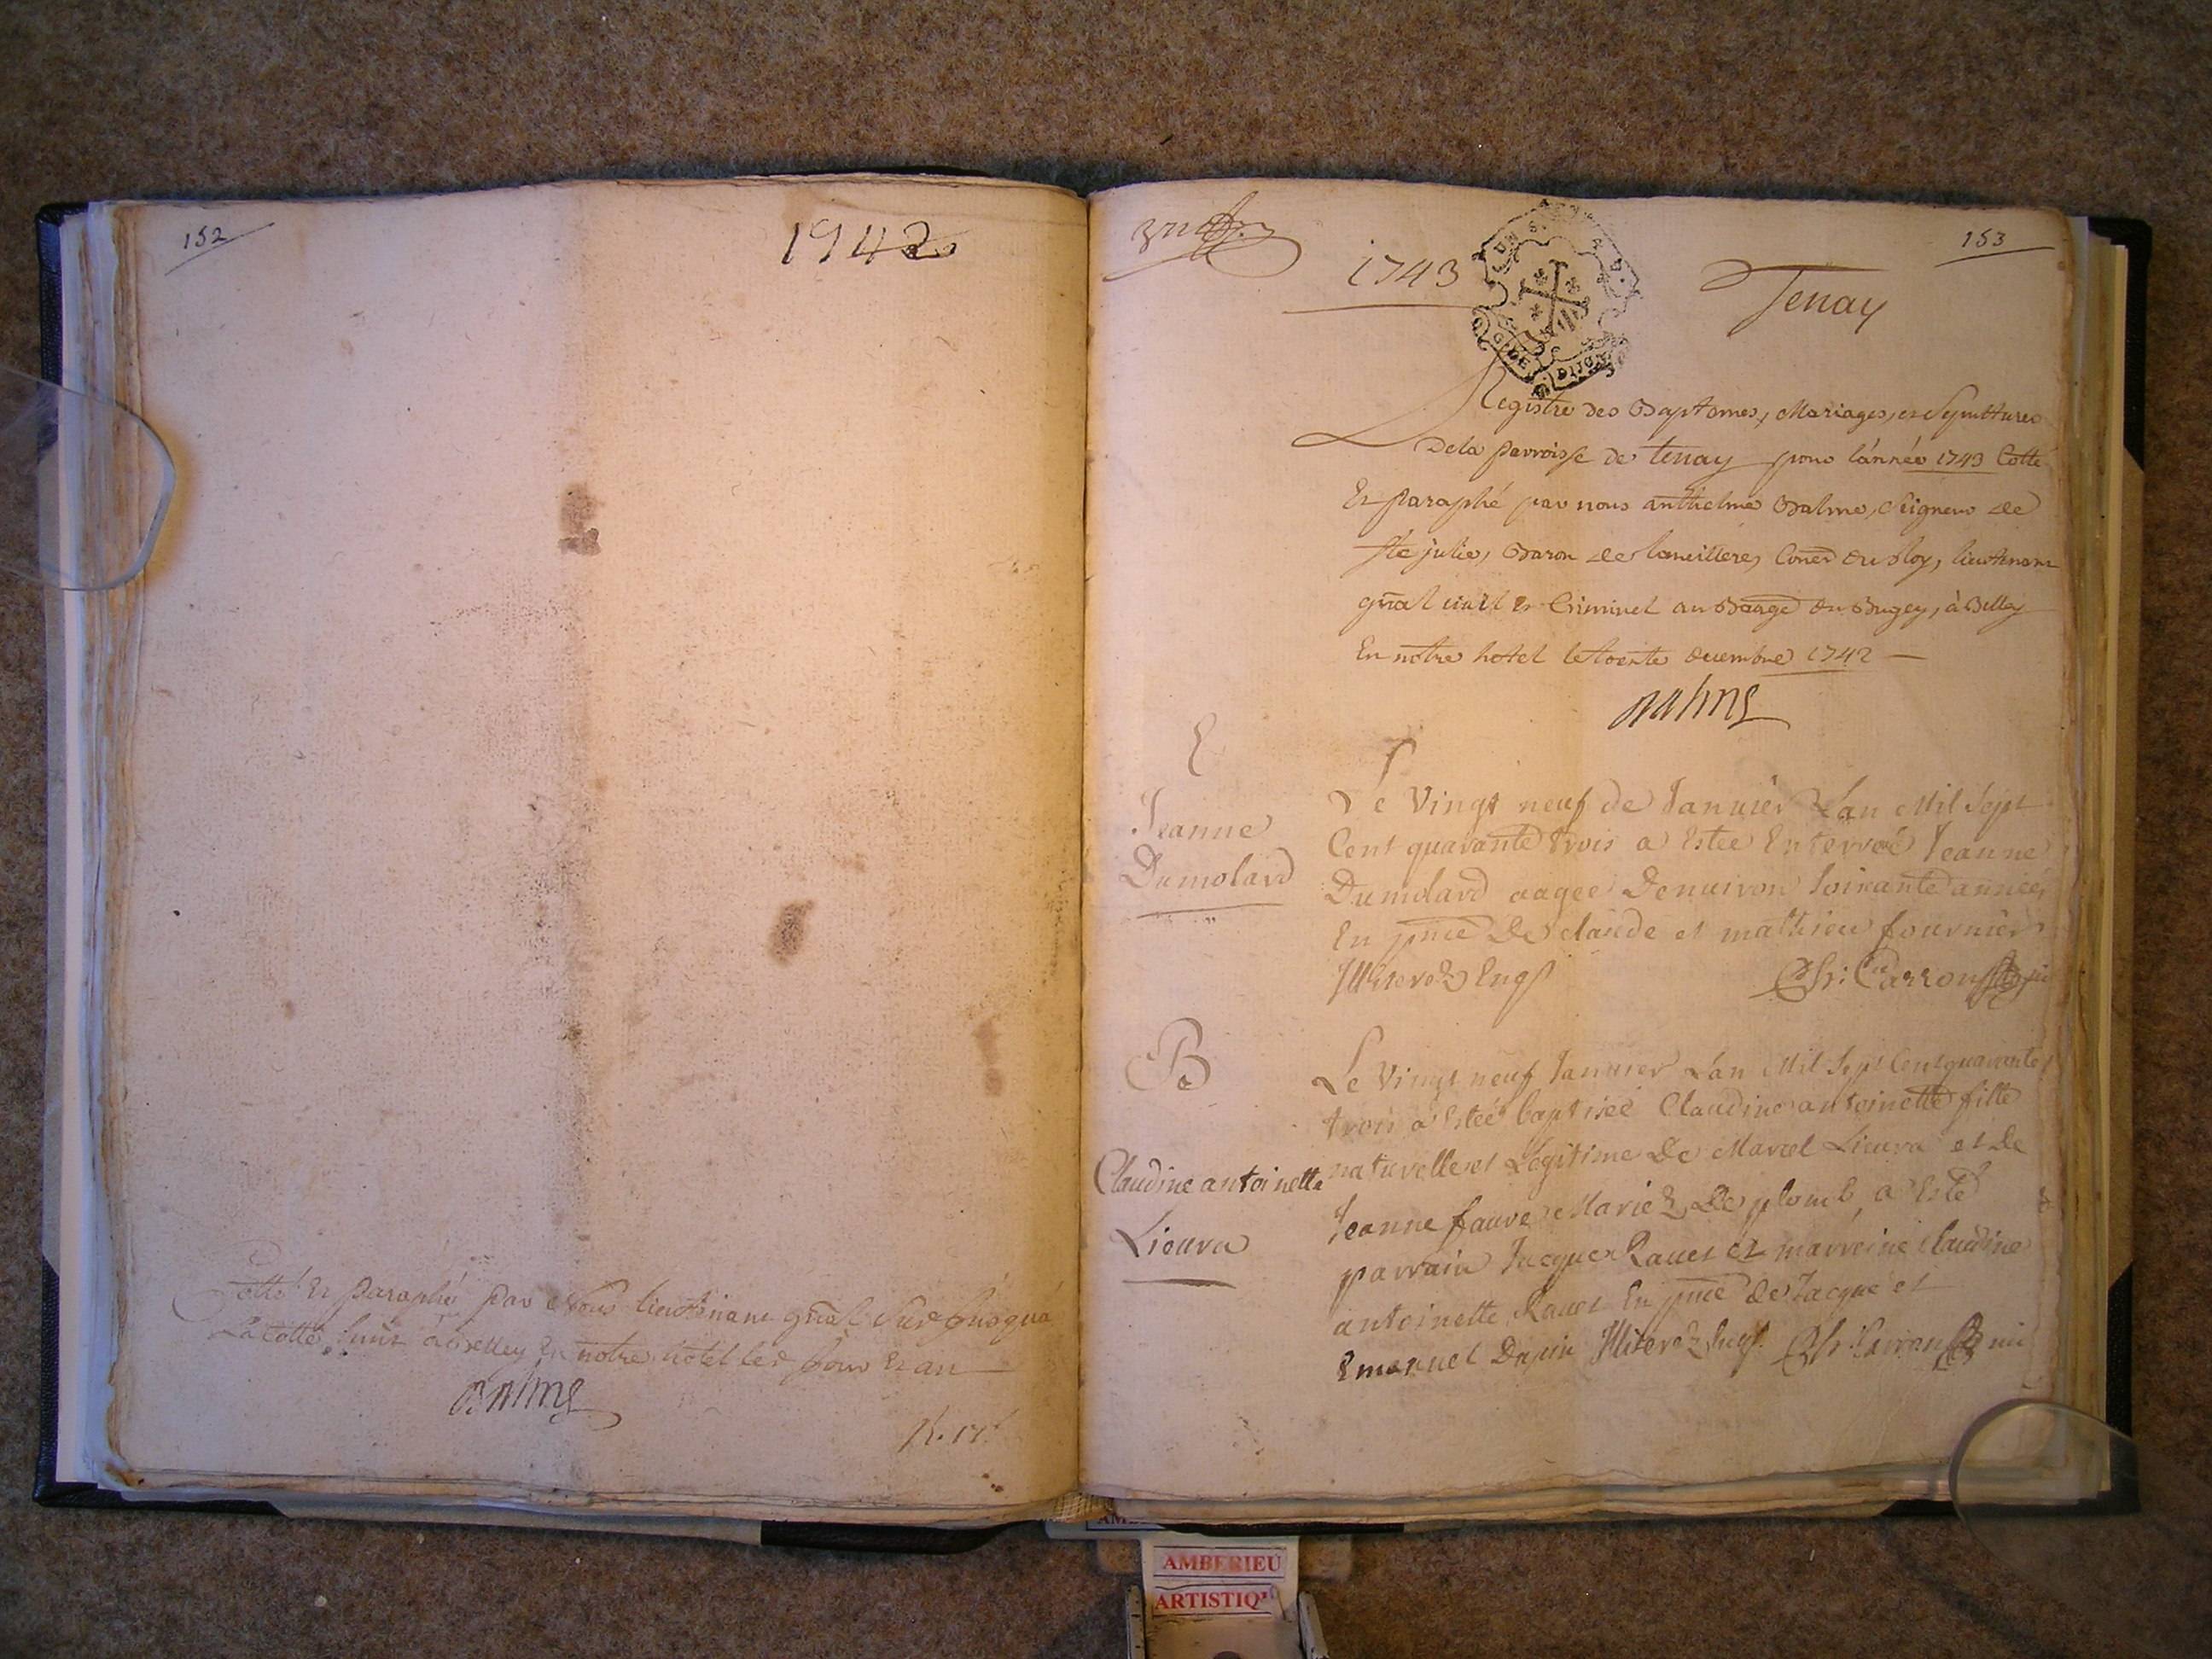 152
1942
Cotté Et paraphé par Nous lieutenant gñal Susd jusqua
La Cotte huit à Belley En notre hôtel les jour Et an
Balme
153
1743
Tenay
DIJON
Registre des Baptemes, Mariages, et Sepultures
De la parroisse de tenay pour l'année 1743 Cotté
Et paraphé par nous anthelme Balme, Seigneur de
Ste julie, Baron de Coner du Roy, lieutenant
gñal civil et Criminel au Baage du Bugey, à Belley
En notre hotel le trente decembre 1742
Balme
E
Jeanne
Dumolard
Le Vingt neuf de Januier L'an Mil Sept
Cent quarante trois a Estée Enterreé Jeanne
Dumolard aagée Denuiron Soixante années
En pnce De claude et mathieu fournier
Illiterez Enqs Chr: Carron
B
Claudine antoinette
Lieura
Le Vingt neuf Januier L'an Mil Sept Cent quarante
trois a Estée baptisée Claudine antoinette fille
naturelle et Legitime De Marcel Lieura et de
Jeanne faure Mariez De plomb, a Esté
parrain Jacque Rauet et marreine Claudine
antoinette Rauet En pnce de Jacque et
Emanuel Dapin Illiterez Enqs. Chr: Carron
AMBERIEU
ARTISTIQ